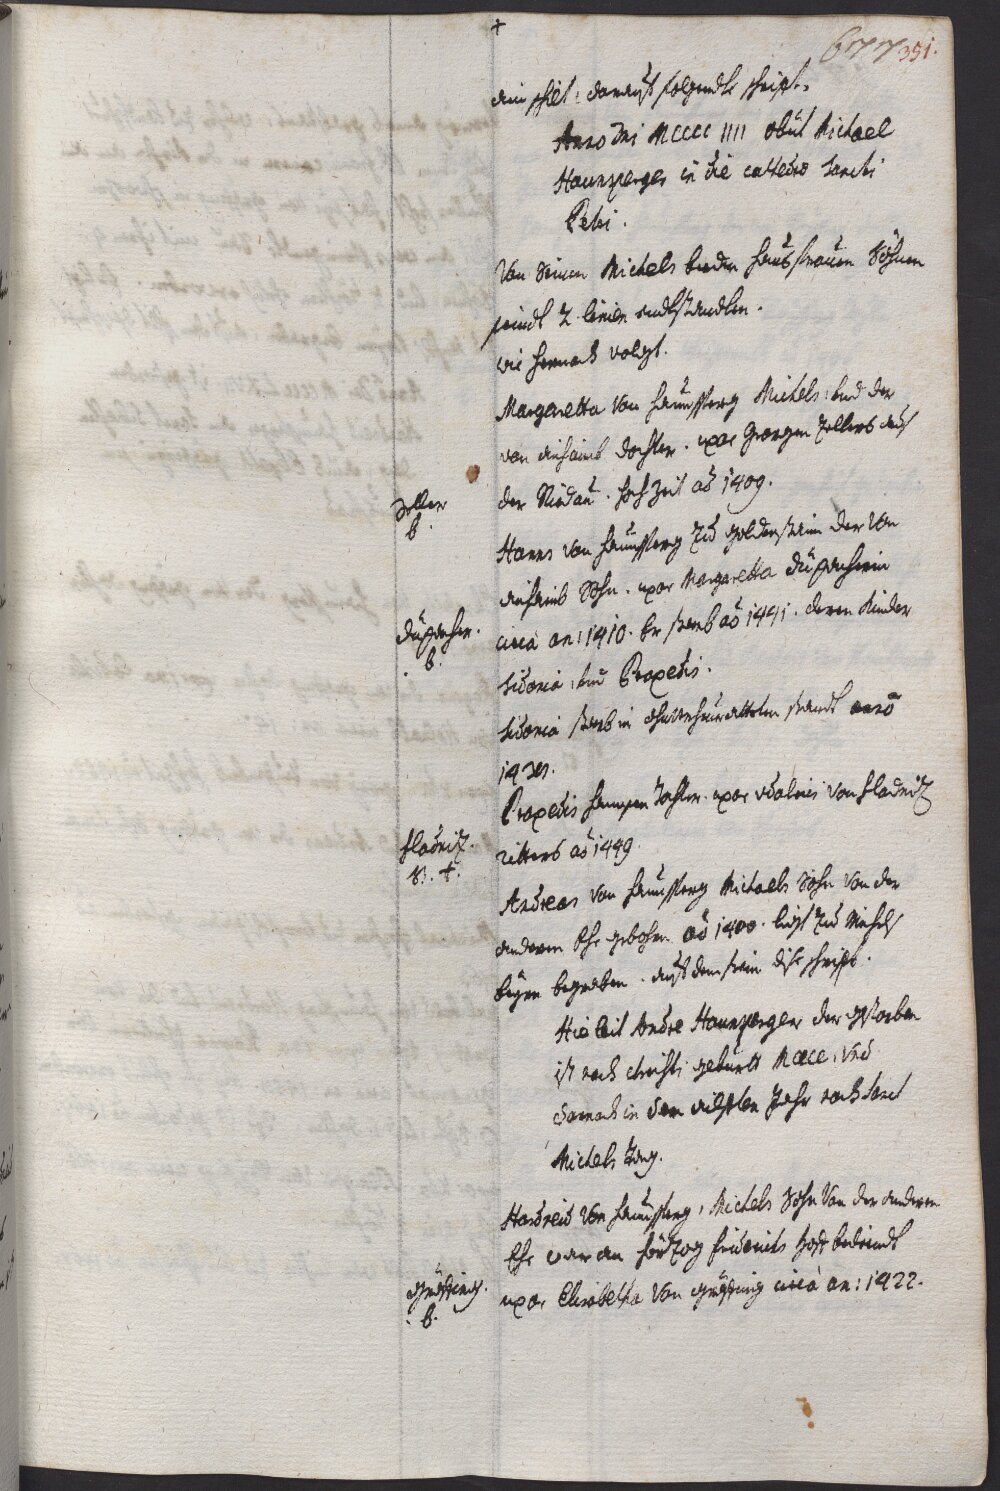 +
677 351.
ain schilt: darauf folgendte schrift.
Anno Dni MCCCC IIII obiit Michael
Haunsperger in die cathedra Sancti
Petri.
Von seinen Michels beeden hausfrauen Söhnen
seindt 2 linien endtstanden.
wie hernach volgt.
Margaretta von Haunsperg Michels, und der
von Aichaimb dochter. uxor Georgen Zellers aus
der Riedau. hochzeit aō 1409.
Zeller
b.
Hanns von Haunsperg zu Goldenstain der von
Aichaimb Sohn. uxor Margaretta Dürrnherin
circa an: 1410. Er starb aō 1441. deren Kinder
Dürrnher.
b.
Sidonia, und Praxedis.
Sidonia starb in ohnverheuratteten standt anno
143
Praxedis Hansen dochter. uxor Udalrici von Fladnitz
ritters aō 1449.
Fladnitz.
B. +.
Andreas von Haunsperg Michaels Sohn von der
anderen Ehe gebohren aō 1400. ligt zu Michels
beyrn begraben. auf dem stein dise schrift.
Hie leit Andre Haunsperger der gestorben
ist nach christi geburtt MCCCC, und
darnach in dem Jahr nach Sanct
Michels tag.
Hardneid von Haunsperg, Michels Sohn von der anderen
Ehe war an Hörtzog Friderichs hoff bedient
uxor Elisabetha von Gräfting circa an: 1422.
Gräfting.
b.